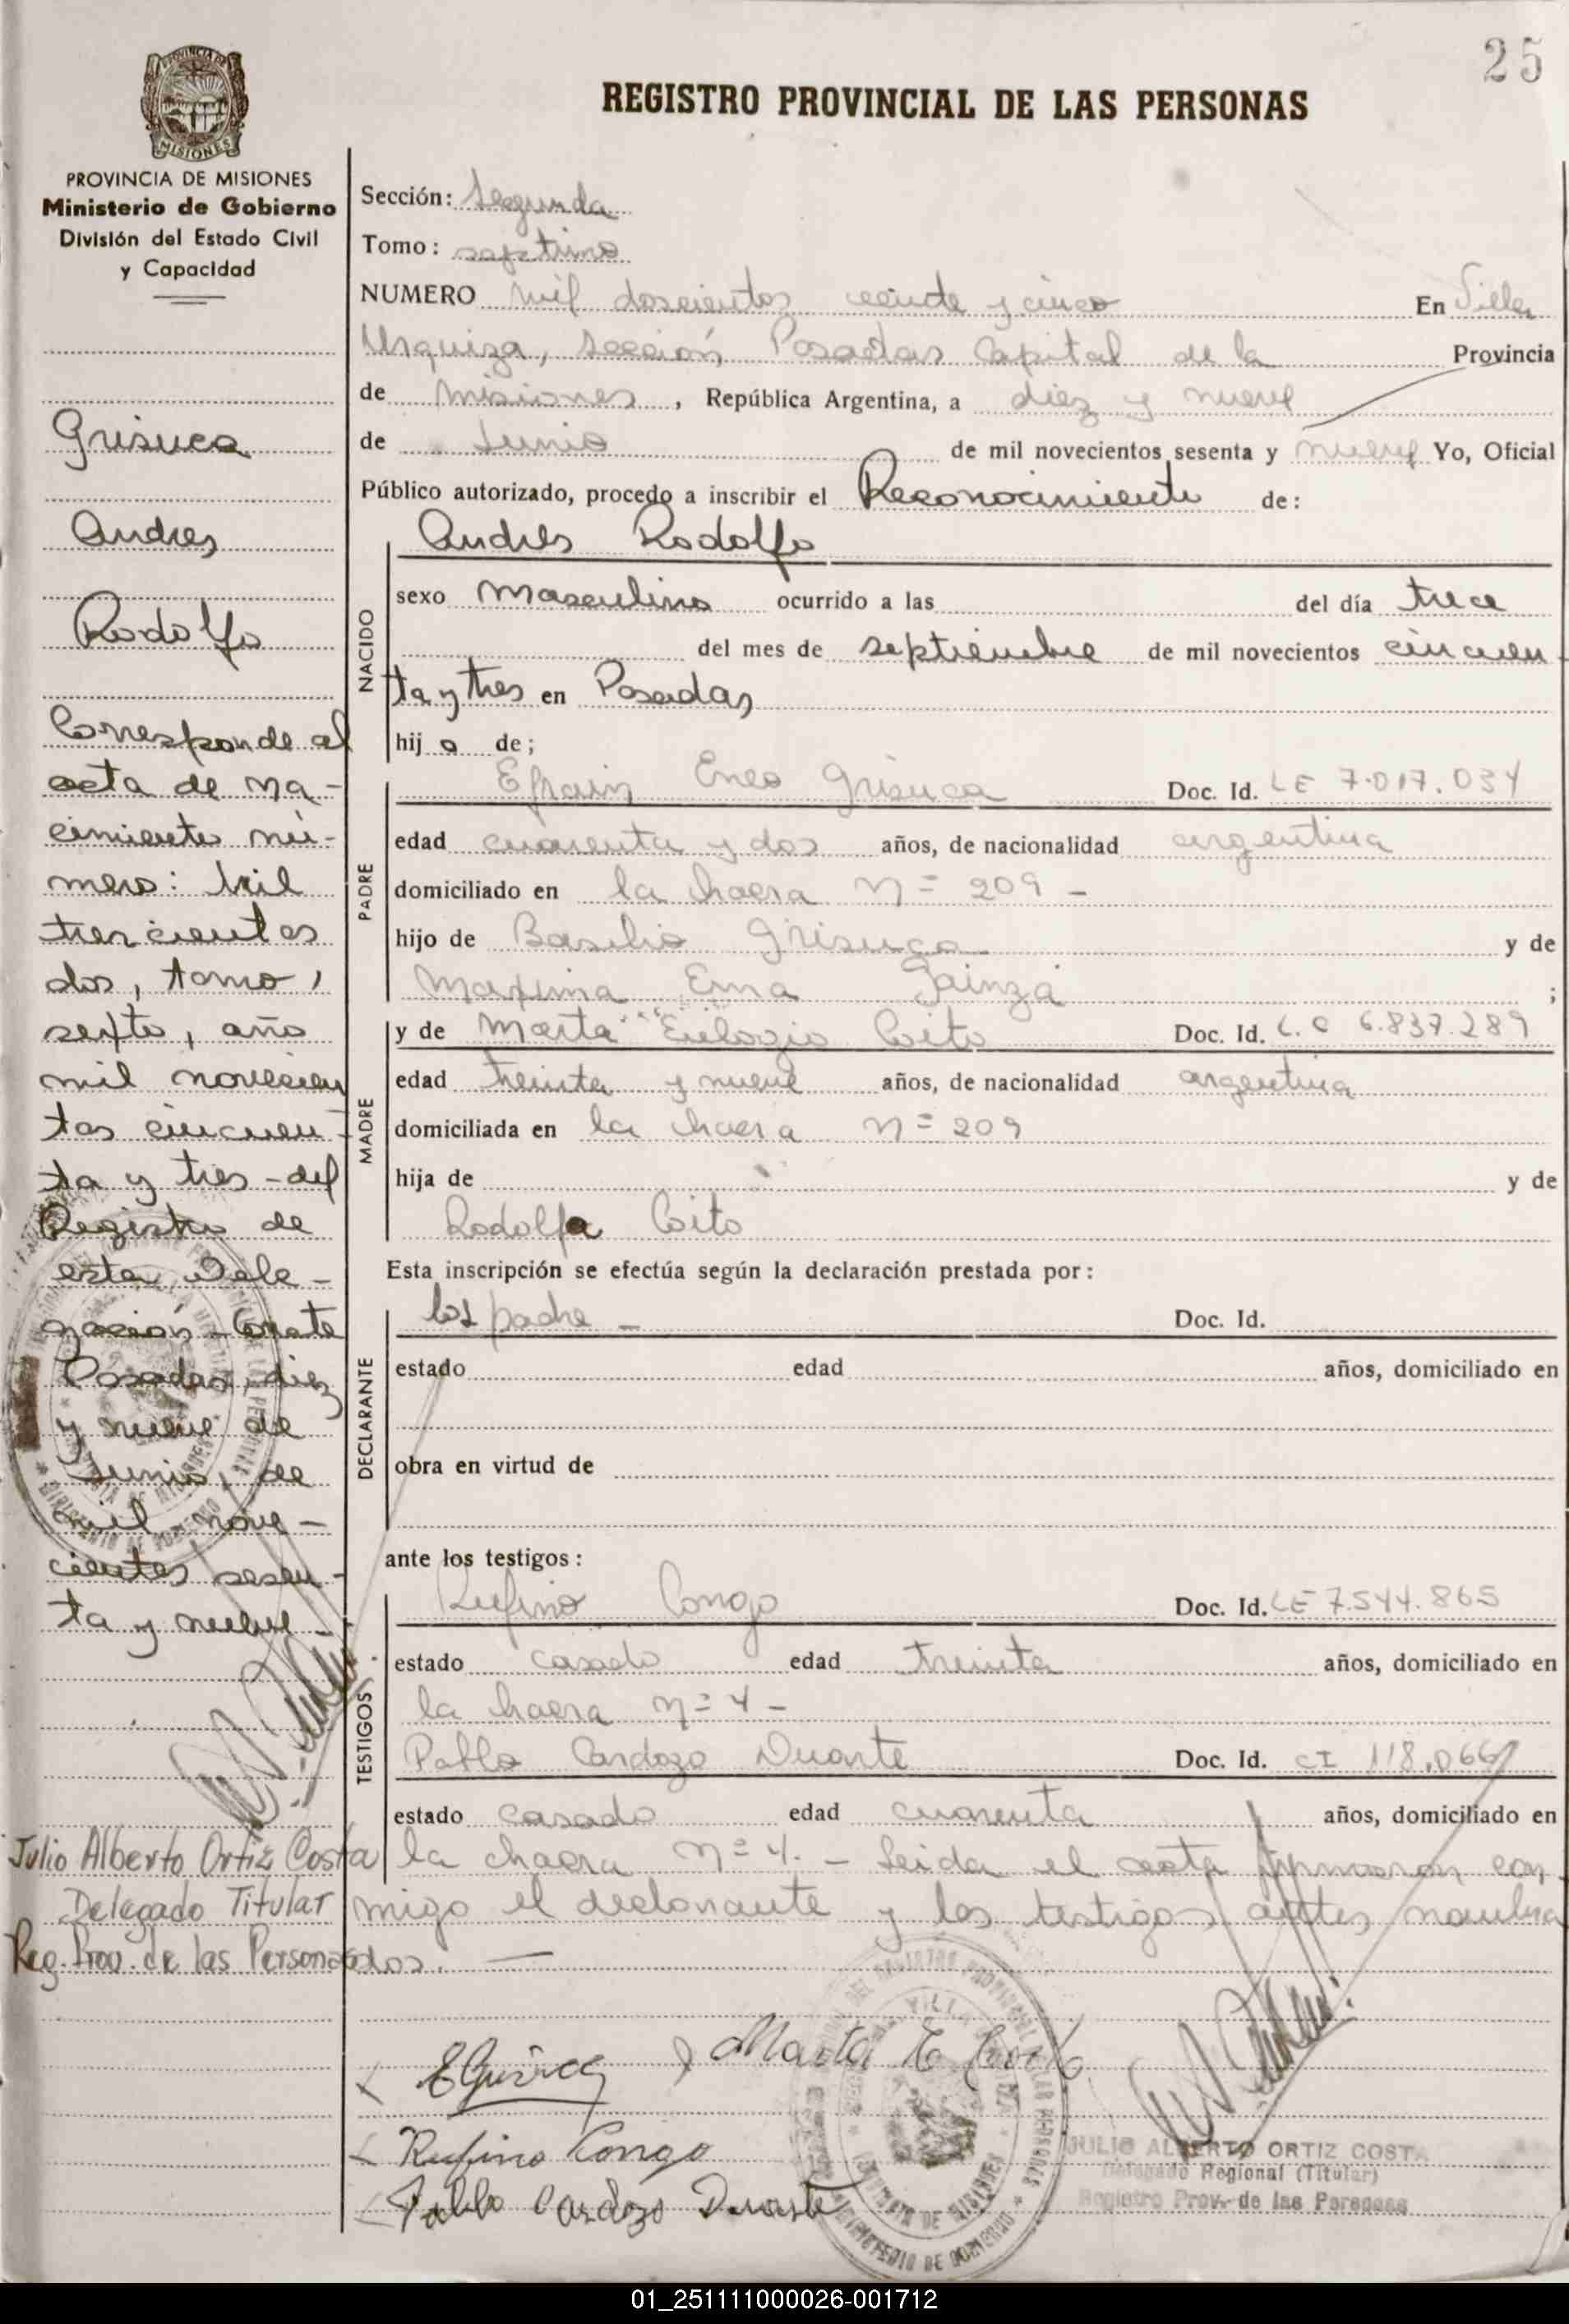 25
REGISTRO PROVINCIAL DE LAS PERSONAS
PROVINCIA DE MISIONES
MISIONES
PROVINCIA DE MISIONES
Ministerio de Gobierno
División del Estado Civil
y Capacidad
Grisuca
Andres
Rodolfo
Corresponde al
acta de na-
cimiento nú-
mero: Mil
trescientos
dos, tomo,
sexto, año
mil novecien
tos cincuen-
ta y tres - del
Registro de
esta Dele-
gación - Conste
Posadas, diez
y nueve de
Junio, de
mil nove-
cientos sesen-
ta y nueve
Julio Alberto Ortiz Costa
Delegado Titular
Reg. Prov. de las Personas
Sección: Segunda
Tomo: septimo
NUMERO mil doscientos veinte y cinco En Villa
Urquiza, Sección Posadas Capital de la Provincia
de Misiones, República Argentina, a diez y nueve
de Junio de mil novecientos sesenta y nueve Yo, Oficial
Público autorizado, procedo a inscribir el Reconocimiento de:
NACIDO
Andres Rodolfo
sexo Masculino ocurrido a las del día trece
del mes de septiembre de mil novecientos cincuen
ta y tres en Posadas
hijo de;
PADRE
Efrain Eneo Grisuca Doc. Id. LE 7.017.034
edad cuarenta y dos años, de nacionalidad argentina
domiciliado en la chacra n= 209 -
hijo de Basilio Grisuca y de
Maxima Ema Gainza ;
MADRE
y de Marta Eulogia Coito Doc. Id. L.C 6.837.289
edad treinta y nueve años, de nacionalidad argentina
domiciliada en la chacra n= 209
hija de y de
Rodolfa Coito
Esta inscripción se efectúa según la declaración prestada por:
DECLARANTE
los padre - Doc. Id.
estado edad años, domiciliado en
obra en virtud de
ante los testigos:
TESTIGOS
Rufino Congo Doc. Id. LE 7.544.865
estado casado edad treinta años, domiciliado en
la chacra n= 4 -
Pablo Cardozo Duarte Doc. Id. CI 118.066
estado casado edad cuarenta años, domiciliado en
la chacra n= 4. - Leida el acta firmaron con
migo el declarante y los testigos antes nombra
dos. —
EGrisuca Marta E Coito
Rufino Congo
Pablo Cardozo Duarte
JULIO ALBERTO ORTIZ COSTA
Delegado Regional (Titular)
Registro Prov. de las Personas
01_251111000026-001712